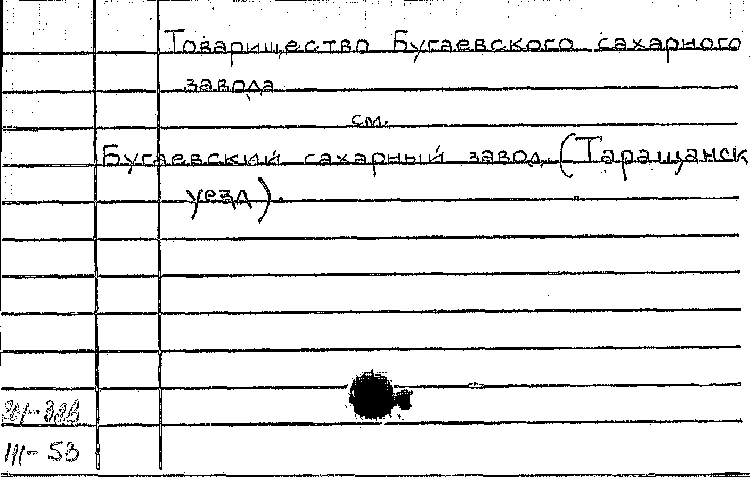 Товарищество Бугаевского сахарного
завода
см.
Бугаевский сахарный завод (Таращанск
уезд).
III- 53